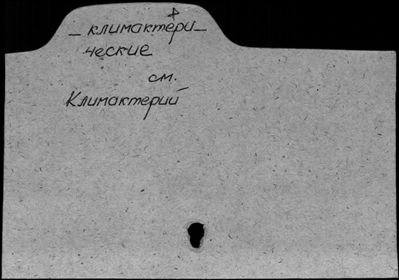 – климактери–
ческие
см.
Климактерий